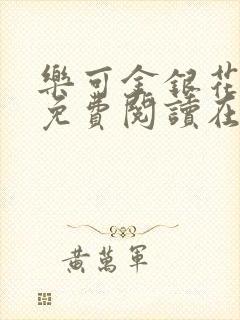 樂可金銀花
免費閱讀在
黃萬軍